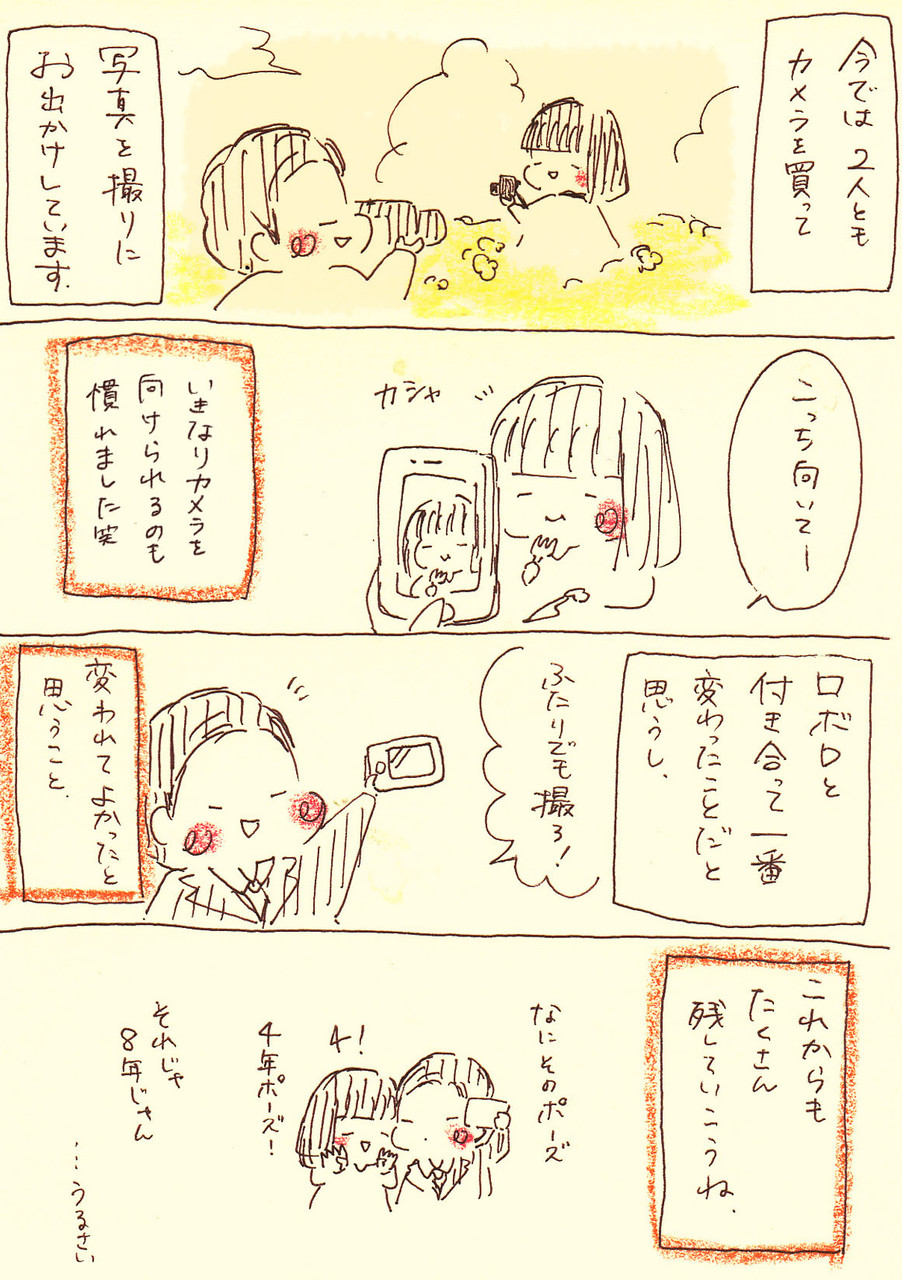 今では2人とも
カメラを買って
写真を撮りに
お出かけしています.
こっち向いてー
カシャ
いきなりカメラを
向けられるのも
慣れました笑
ロボロと
付き合って一番
変わったことだと
思うし、
ふたりでも撮ろ!
変われてよかったと
思うこと.
これからも
たくさん
残していこうね.
なにそのポーズ
4!
4年ポーズ!
それじゃ
8年じゃん
…うるさい